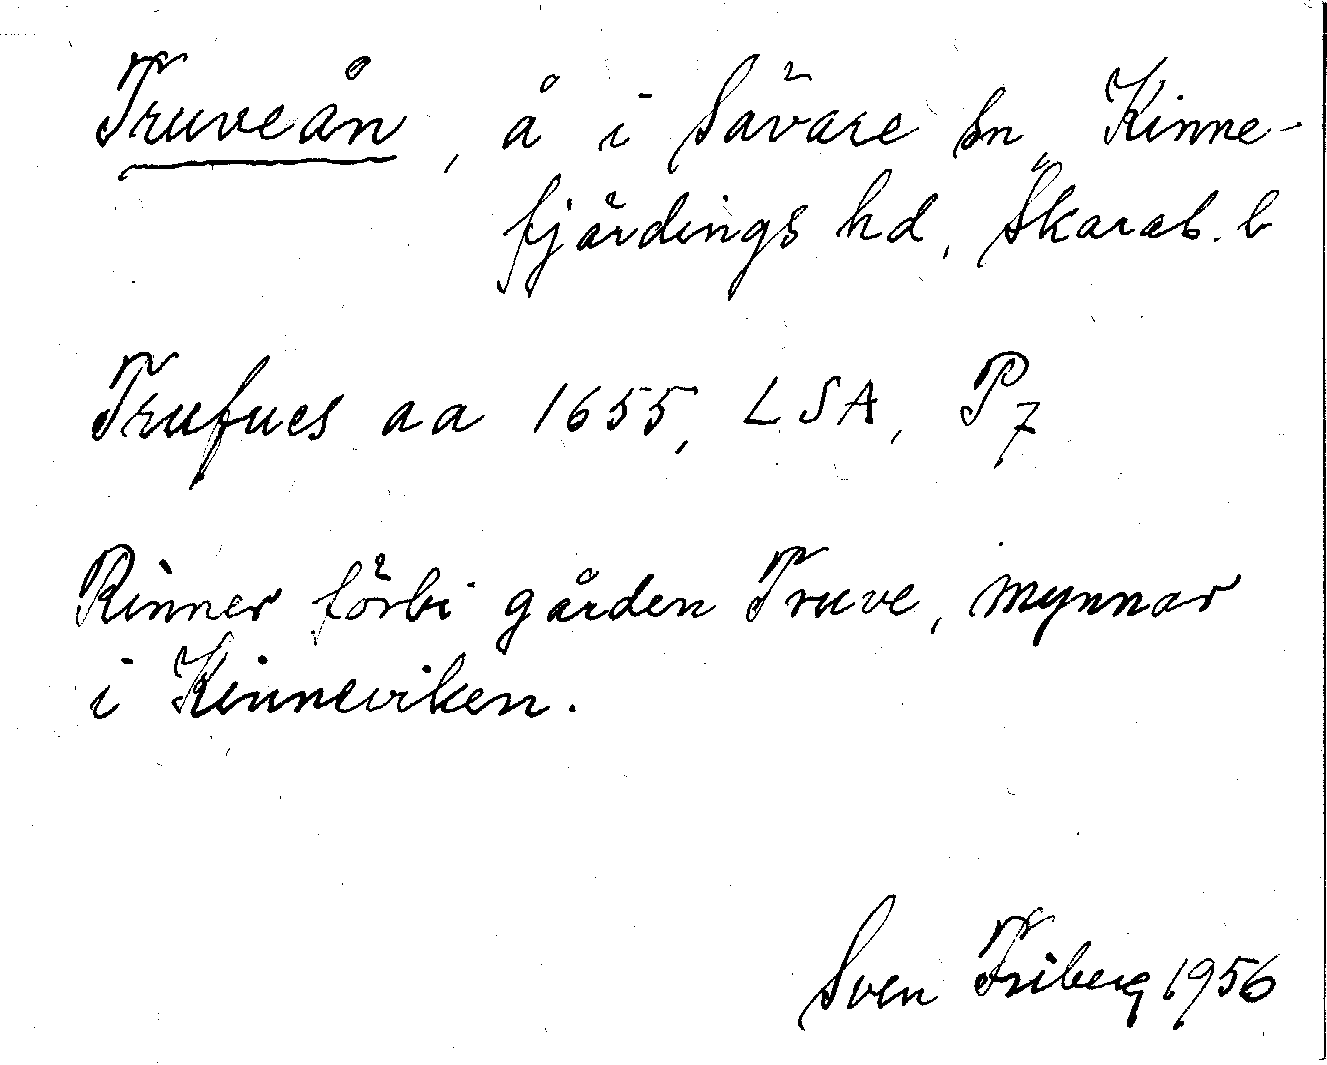 Truveån, å i Sävare sn, Kinne-
fjärdings hd, Skarab. l
Trufues aa 1655, LSA, P7
Rinner förbi gården Truve, mynnar
i Kinneviken.
Sven Friberg 1956